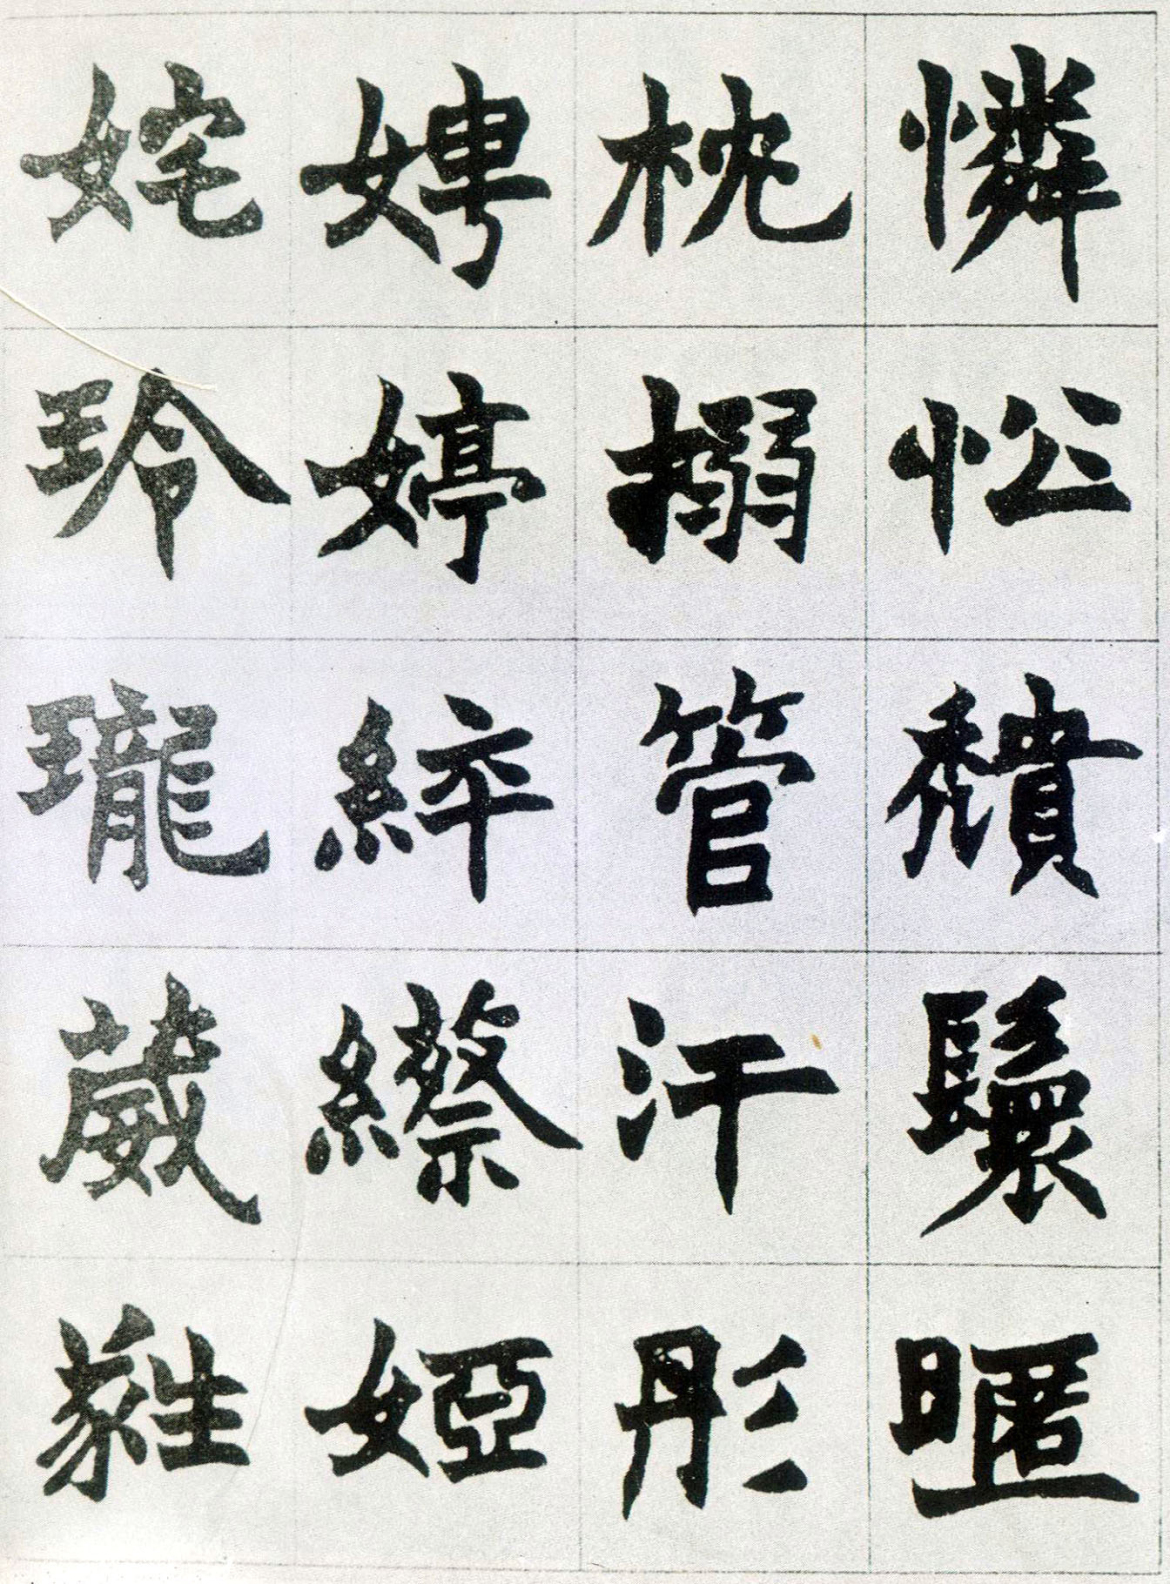 憐忪穨鬟暱
枕搦管汗彤
娉婷綷縩婭
姹玲瓏葳甤